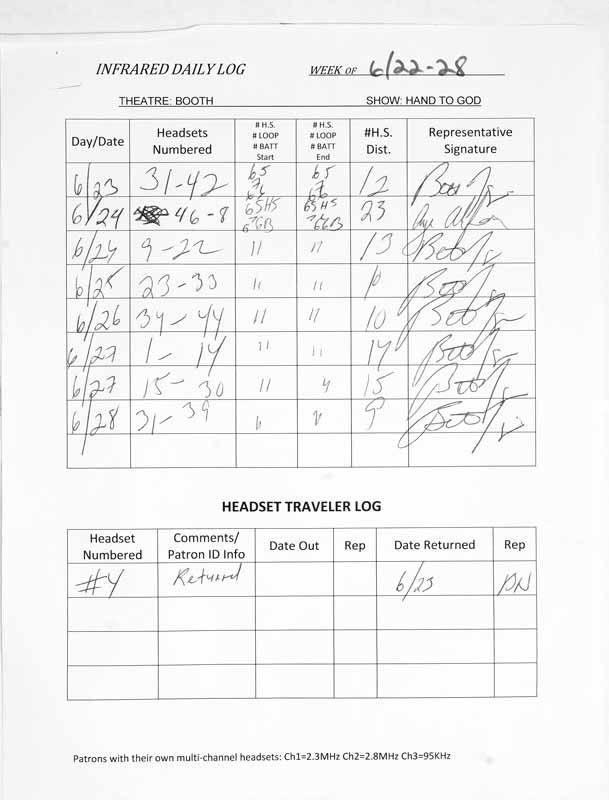 INFRARED DAILY LOG WEEK OF 6/22-28
THEATRE: BOOTH SHOW: HAND TO GOD
Day/Date Headsets Numbered # H.S. # LOOP # BATT Start # H.S. # LOOP # BATT End #H.S. Dist. Representative Signature
6/23 31-42 65 65 12
6/24 46-8 65HS 65HS 23
6/24 9-22 11 11 13
6/25 23-33 11 11 10
6/26 34-44 11 11 10
6/27 1-14 11 11 14
6/27 15-30 11 15
6/28 31-39 9
HEADSET TRAVELER LOG
Headset Numbered Comments/ Patron ID Info Date Out Rep Date Returned Rep
#4 Returned 6/23
Patrons with their own multi-channel headsets: Ch1=2.3MHz Ch2=2.8MHz Ch3=95KHz